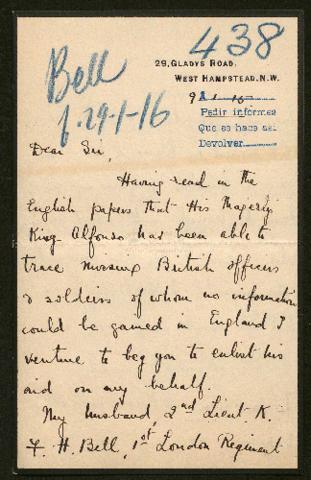 438
Bell
f. 29-1-16
29, GLADYS ROAD,
WEST HAMPSTEAD, N.W.
Pedir informes
Que se hace así
Devolver
Dear Sir,
Having read in the
English papers that His Majesty
King Alfonso has been able to
trace missing British officers
& soldiers of whom no information
could be gained in England I
venture to beg you to enlist his
aid on my behalf.
My husband, 2nd Lieut. K.
F. H. Bell, 1st London Regiment